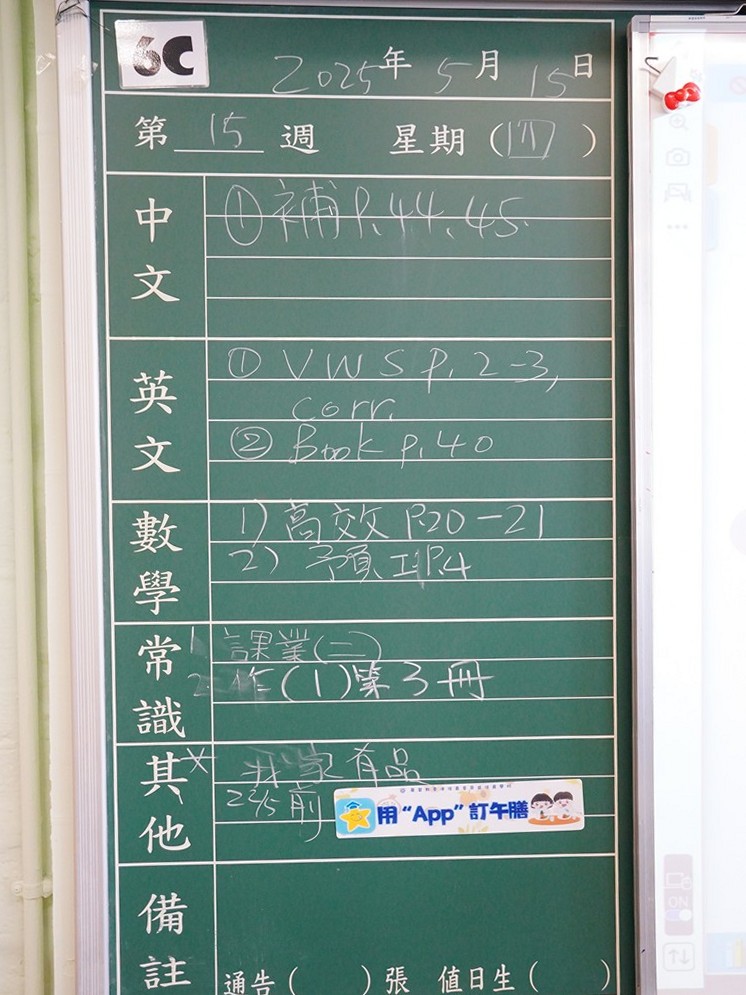 6C
2025年 5月 15日
第 15 週 星期（四）
中文
① 補 P.44, 45.
英文
① VWS P.2-3,
corr.
② Book p.40
數學
1) 高效 P.20-21
2) 預工P.4
常識
1. 課業(二)
2. 作(1)第3冊
其他
* 我家有品
22/5前
用“App”訂午膳
備註
通告（ ）張 值日生（ ）
ON